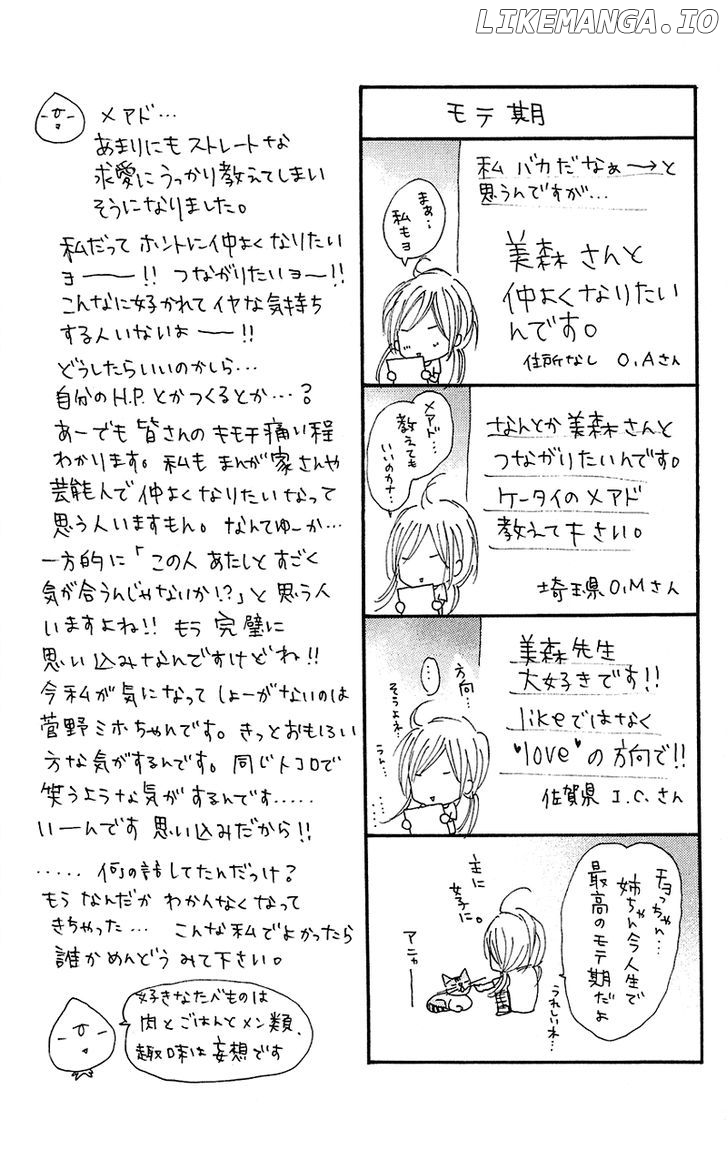 LIKEMANGA.IO
モテ期
私 バカだなぁ〜→と
思うんですが…
美森さんと
仲よくなりたい
んです。
住所なし O,Aさん
まぁ…
私もヨ
なんとか美森さんと
つながりたいんです。
ケータイのメアド
教えて下さい。
埼玉県O,Mさん
メアド…
教えても
いいのかナ…
美森先生
大好きです!!
likeではなく
"love"の方向で!!
佐賀県 I.C.さん
方向…
…
そうよネ…
うん…
チョっちゃん…
姉ちゃん今人生で
最高のモテ期だよ
主に
女子に。
アニャー
うれしいネ…
メアド…
あまりにもストレートな
求愛にうっかり教えてしまい
そうになりました。
私だって ホントに仲よくなりたい
ヨ――!! つながりたいヨ〜!!
こんなに好かれてイヤな気持ち
する人いないよ――!!
どうしたらいいのかしら…
自分のH.P.とかつくるとか…?
あーでも 皆さんのキモチ痛い程
わかります。私も まんが家さんや
芸能人で仲よくなりたいなって
思う人いますもん。なんてゆーか…
一方的に「この人 あたしと すごく
気が合うんじゃないか!?」と 思う人
いますよね!! もう 完璧に
思い込みなんですけどね!!
今私が気になって しょーがないのは
菅野ミホちゃんです。きっとおもしろい
方な気がするんです。同じトコロで
笑うような気がするんです.....
いーんです 思い込みだから!!
..... 何の話してたんだっけ?
もう なんだか わかんなくなって
きちゃった… こんな私でよかったら
誰かめんどう みて下さい。
好きなたべものは
肉とごはんとメン類、
趣味は妄想です